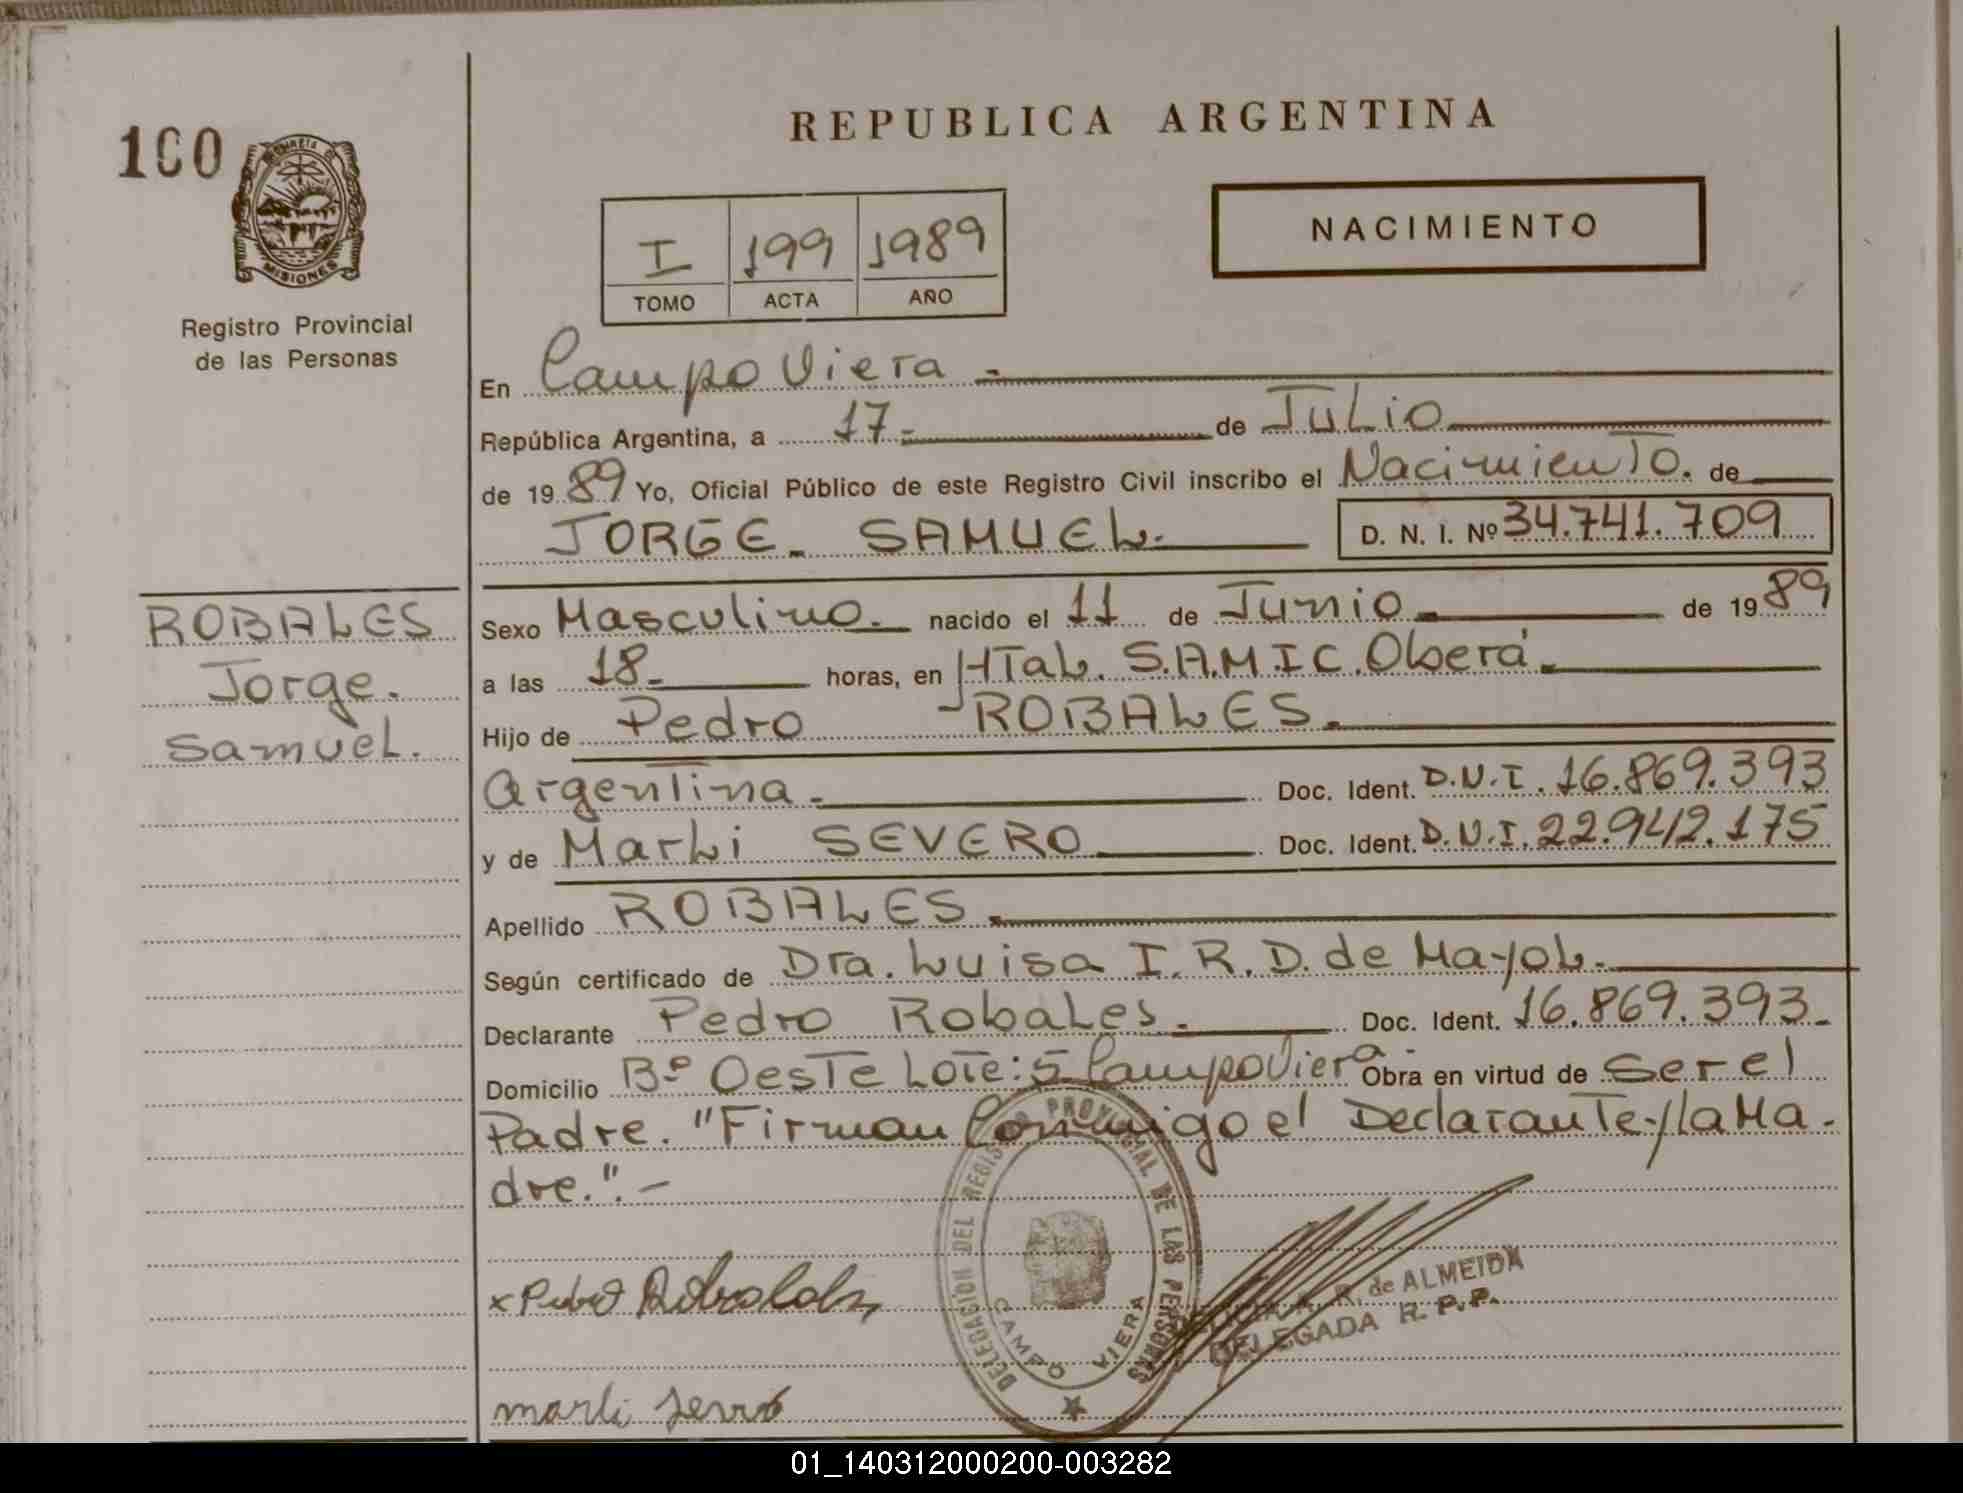 REPUBLICA ARGENTINA
100
MISIONES
Registro Provincial
de las Personas
NACIMIENTO
I 199 1989
TOMO ACTA AÑO
En Campo Viera -
República Argentina, a 17- de JULio
de 1989 Yo, Oficial Público de este Registro Civil inscribo el Nacimiento. de
JORGE- SAMUEL. D. N. I. Nº 34.741.709
ROBALES
Jorge.
SamueL.
Sexo Masculino. nacido el 11 de Junio de 1989
a las 18- horas, en HTaL. S.A.M.I.C. Oberá.
Hijo de Pedro ROBALES.
Argentina - Doc. Ident. D.N.I. 16.869.393
y de MarLi SEVERO Doc. Ident. D.N.I. 22.942.175
Apellido ROBALES.
Según certificado de Dra. Luisa I. R. D. de MayoL.
Declarante Pedro RobaLes. Doc. Ident. 16.869.393.
Domicilio Bº Oeste Lote: 5 Campo Viera Obra en virtud de ser el
Padre. "Firman Conmigo el Declarante y la Ma-
dre.".-
DELEGACION DEL REGISTRO PROVINCIAL DE LAS PERSONAS
CAMPO VIERA
R. de ALMEIDA
DELEGADA R. P. P.
x Pedro Robales
marli severo
01_140312000200-003282